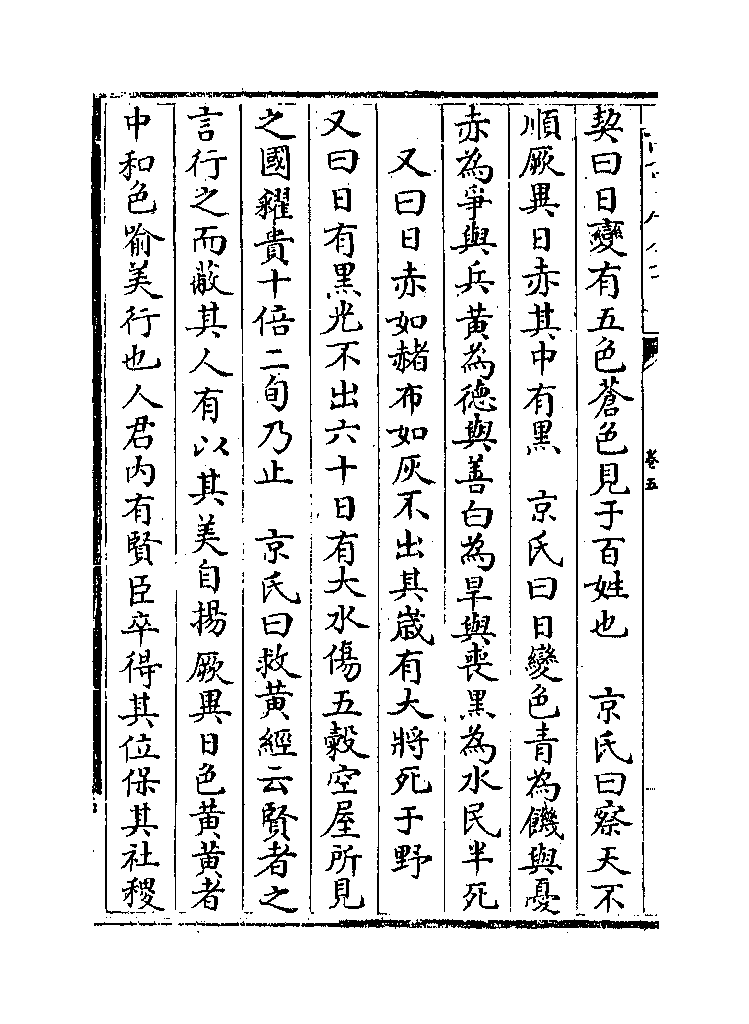 契曰日變有五色蒼色見于百姓也　京氏曰察天不
順厥異日赤其中有黑　京氏曰日變色青為饑與憂
赤為爭與兵黄為徳與善白為旱與喪黑為水民半死
又曰日赤如赭布如灰不出其嵗有大將死于野
又曰日有黑光不出六十日有大水傷五穀空屋所見
之國糴貴十倍二旬乃止　京氏曰救黄經云賢者之
言行之而蔽其人有以其美自揚厥異日色黄黄者
中和色喻美行也人君内有賢臣卒得其位保其社稷
卷五